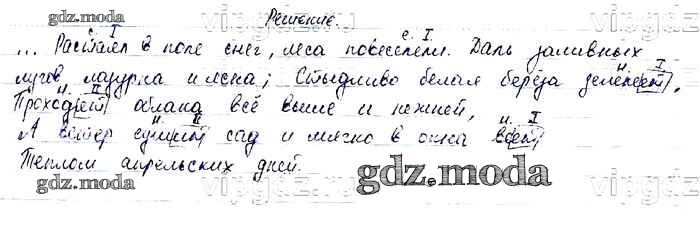 Решение.
с. I с. I
... Растаял в поле снег, леса повеселели. Даль заливных
н. I
лугов лазурна и ясна; Стыдливо белая берёза зеленеет,
н. II
Проходят облака всё выше и нежней,
н. II н. I
А ветер сушит сад и мягко в окна веет
Теплом апрельских дней.
gdz.moda
gdz.moda
gdz.moda
vipgdz
vipgdz
vipgdz